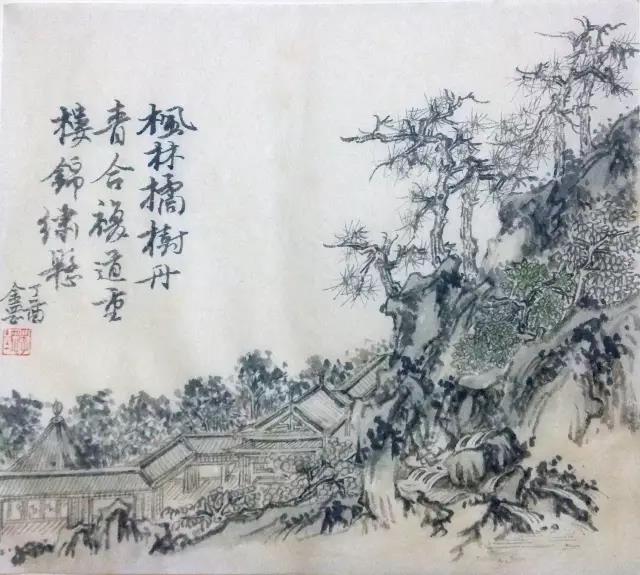 楓林橘樹丹
青合複道重
樓錦繡懸
丁酉